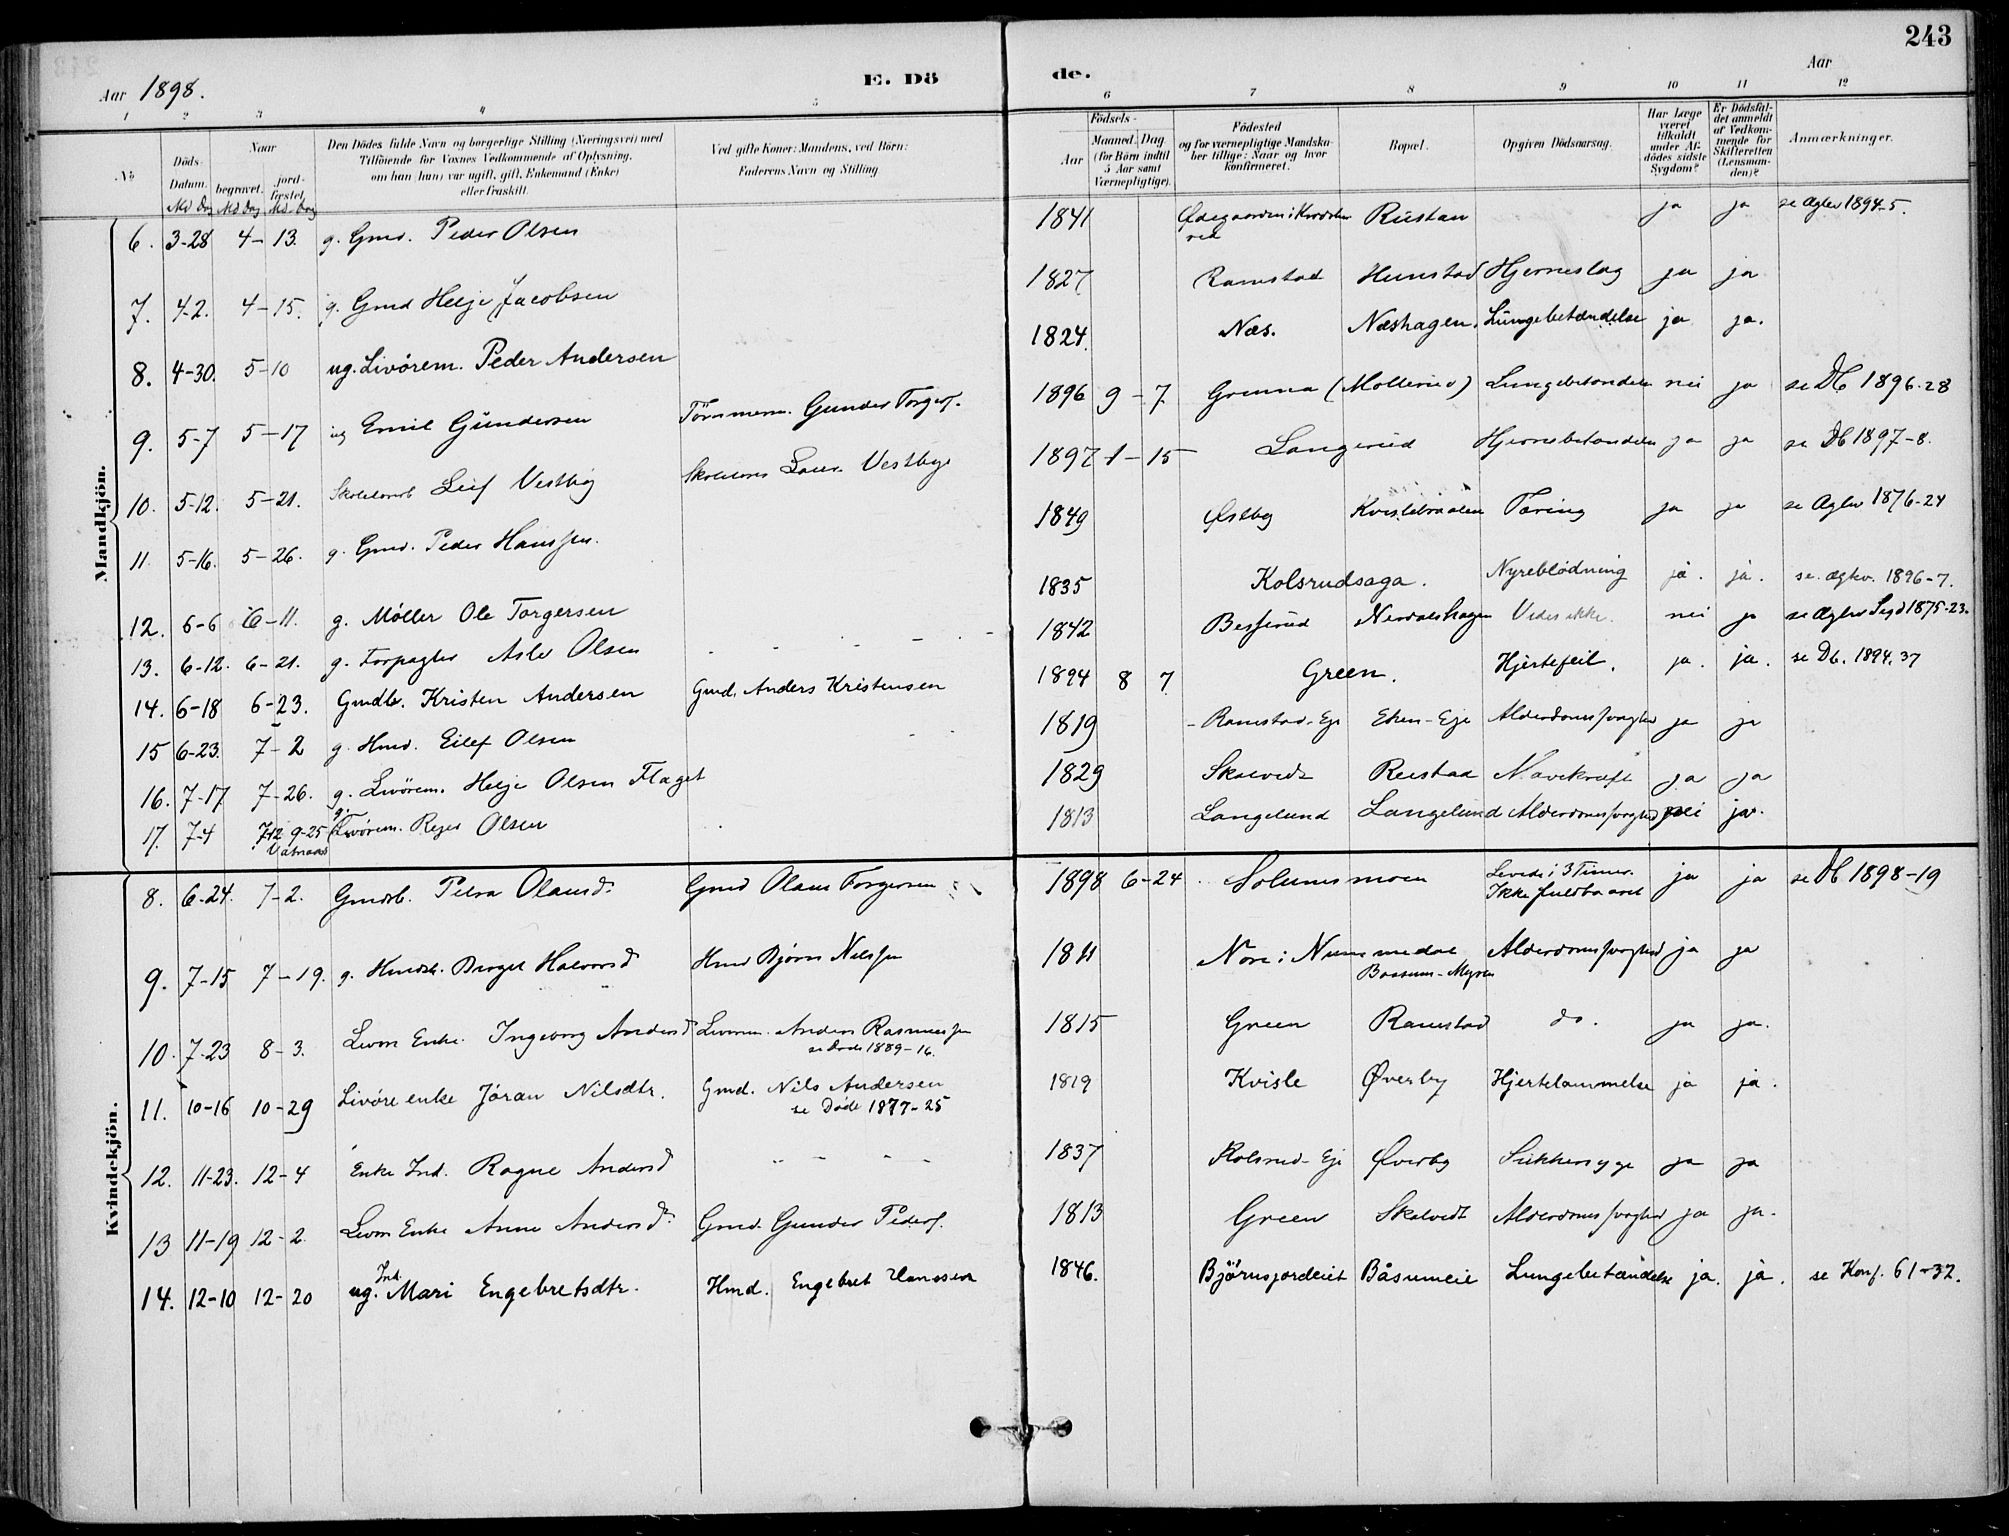 243
Aar 1898.
E. Dö
de.
Aar
1 2 3 4 5
6 7 8 9 10 11 12
No
Döds-Datum.
Md Dag
Naar
begravet.
Md Dag
jordfæstet
Md. Dag
Den Dödes fulde Navn og borgerlige Stilling (Næringsvei) med
Tilföiende for Voxnes Vedkommende af Oplysning,
om han (hun) var ugift, gift, Enkemand (Enke)
eller fraskilt.
Ved gifte Koner: Mandens, ved Börn:
Faderens Navn og Stilling
Födsels-
Aar
Maaned. Dag
(for Börn indtil
5 Aar samt
Værnepligtige).
Födested
og for værnepligtige Mandska-
ber tillige: Naar og hvor
konfirmeret.
Bopæl.
Opgiven Dödsaarsag.
Har Læge
været
tilkaldt
under Af-
dödes sidste
Sygdom?
Er Dödsfal-
det anmeldt
af Vedkom-
mende for
Skifteretten
(Lensman-
den)?
Anmærkninger.
Mandkjön.
6. 3-28 4-13. g. Gmd. Peder Olsen 1841 Rustan ja ja se Ægtev 1894-5.
7. 4-2. 4-15. g. Gmd Helje Jacobsen 1827 Ramstad Hunstad Hjerneslag ja ja
8. 4-30. 5-10 ug. Livørem. Peder Andersen 1824. Næs. Næshagen. Lungebetændelse ja ja.
9. 5-7 5-17 ug Emil Gundersen Tömmerm. Gunder Torgers. 1896 9-7 Grenna Lungebetændelse nei ja se Db 1896-28
10. 5-12. 5-21. Leif Vestby Laur. Vestbye 1897 1-15 Langerud Hjernebetændelse ja ja se Db 1897-8.
11. 5-16. 5-26. g. Gmd. Peder Hanssen. 1849 Østby Tæring ja ja se Ægtev 1876-24
12. 6-6 6-11. g. Møller Ole Torgersen 1835 Kolsrudsaga. Nyreblödning ja. ja. se. ægtev. 1896-7.
13. 6-12. 6-21. g. Forpagter Asle Olsen 1842 Besserud Vides ikke. nei ja se Ægtev Sigd 1875-23.
14. 6-18 6-23. Gmdb. Kristen Andersen Gmd. Anders Kristensen 1894 8 7 Green. Hjertefeil. ja. ja. se Db. 1894. 37
15 6-23. 7-2 g. Hmd. Eilef Olsen 1819 Ramstad-Eje Eken-Eje Alderdomssvaghed ja ja
16. 7-17 7-26. g. Livörem. Helje Olsen Flaget 1829 Skalvedt Rustad Mavekræft ja ja
17. 7-4 7-12 9-25 g. Livörem. Olsen 1813 Langelund Langelund Alderdomssvaghed nei ja.
Kvindekjön.
8. 6-24. 7-2. Gmdb. Petra Olausd. Gmd Olaus Torgersen 1898 6-24 Solumsmoen Levede i 3 Timer.
Ikke fuldbaaret ja ja se Db 1898-19
9. 7-15 7-19. g. Birgit Halvorsd Hmd Bjørn Nilssen 1811 Nore i Nummedal Bassum-Myren Alderdomssvaghed ja ja
10. 7-23 8-3. Enke. Ingeborg Andersd Anders Rasmussen
se Døde 1889-16. 1815 Green Ramstad do. ja ja.
11. 10-16 10-29 Livöre enke Jöran Nilsdtr. Gmd. Nils Andersen
se Döde 1877-25 1819 Kvisle Øverby Hjertelammelse ja ja.
12. 11-23. 12-4 Enke Ind. Ragne Andersd 1837 Kolsrud-Eje Øverby Sukkersyge ja ja
13 11-19 12-2. Enke Anne Andersd. Gmd. Gunder Peders. 1813 Green Skalvedt Alderdomssvaghed ja ja.
14. 12-10 12-20 ug. Ind. Mari Engebretsdtr. Hmd. Engebret Hanssen 1846. Björnsjordeiet Båsumeie Lungebetændelse ja. ja. se Konf. 61-32.